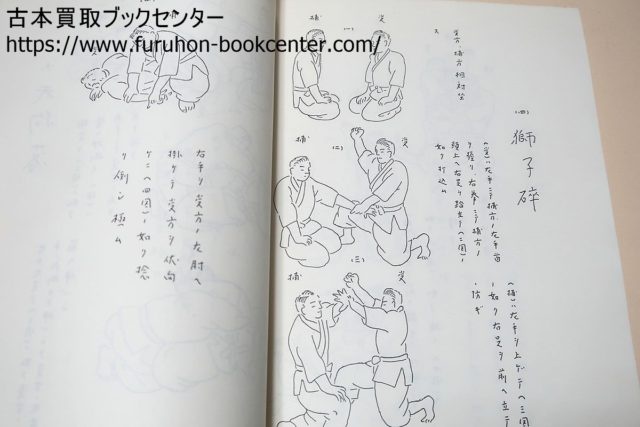 古本買取ブックセンター
https://www.furuhon-bookcenter.com/
(四) 獅子砕
受方捕方相対坐
ス
(一)
受
捕
(受)ハ左手ニテ捕方ノ左手首
ヲ握リ、右拳ニテ捕方ノ
頭上ヘ右足ヲ踏立テ(二図)ノ
如ク打込ム
(二)
受
捕
(捕)ハ左手ヲ上ゲテ(三図)
ノ如ク右足ヲ前ヘ立テ
防ギ
(三)
受
捕
捕
右手ヲ受方ノ左肘ヘ
掛ケテ受方ヲ伏向
ケニ(四図)ノ如ク捻
リ倒シ極ム